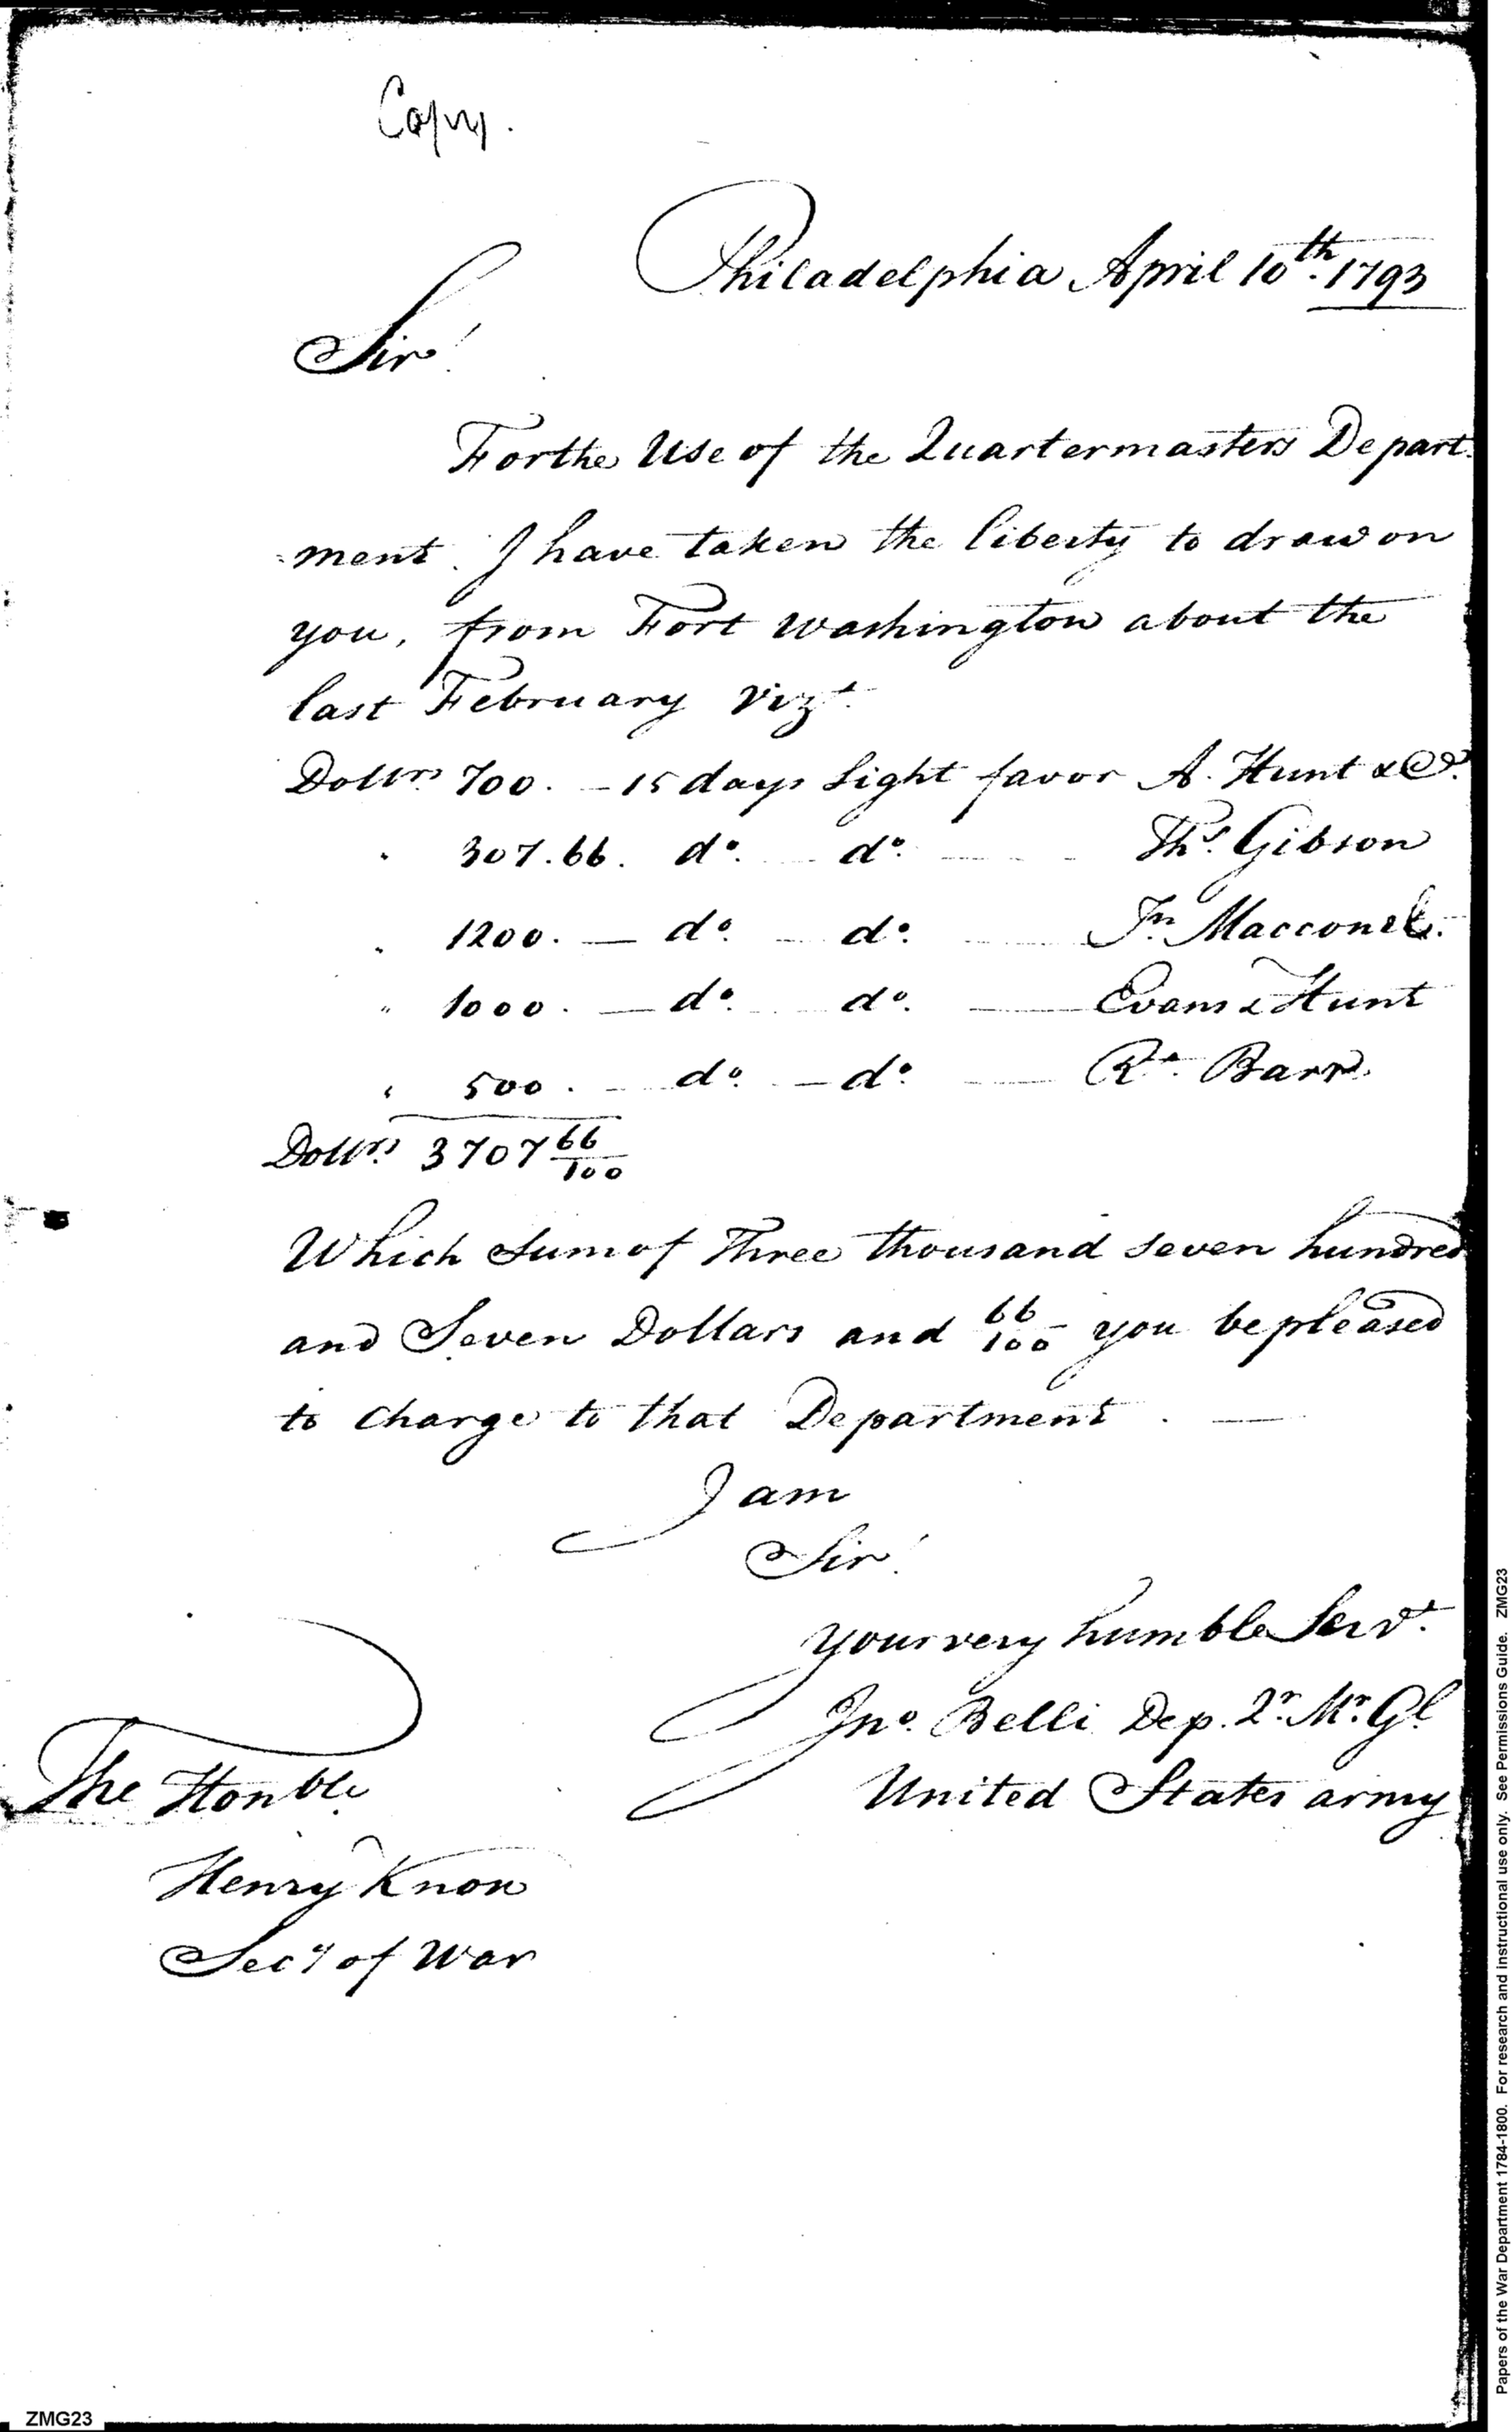 Copy.
Philadelphia April 10th. 1793
Sir!
For the Use of the Quartermasters Depart
=ment. I have taken the liberty to draw on
you, from Fort Washington about the
last February vizt.
Dollrs. 700. - 15 days Sight favor A. Hunt & Co.
" 307.66. do. do. Ths. Gibson
" 1200. - do. do. Jn. Macconel.
" 1000. - do. do. Evans & Hunt
" 500. - do. - do. Rt. Barr.
Dollrs. 3707 66/100
Which Sum of Three thousand seven hundred
and Seven Dollars and 66/100 you be pleased
to charge to that Department. —
I am
Sir!
your very humble Servt.
Jno. Belli Dep. Qr. Mr. Gl.
United States army
The Honble.
Henry Knox
Secy of War
ZMG23
Papers of the War Department 1784-1800. For research and instructional use only. See Permissions Guide. ZMG23